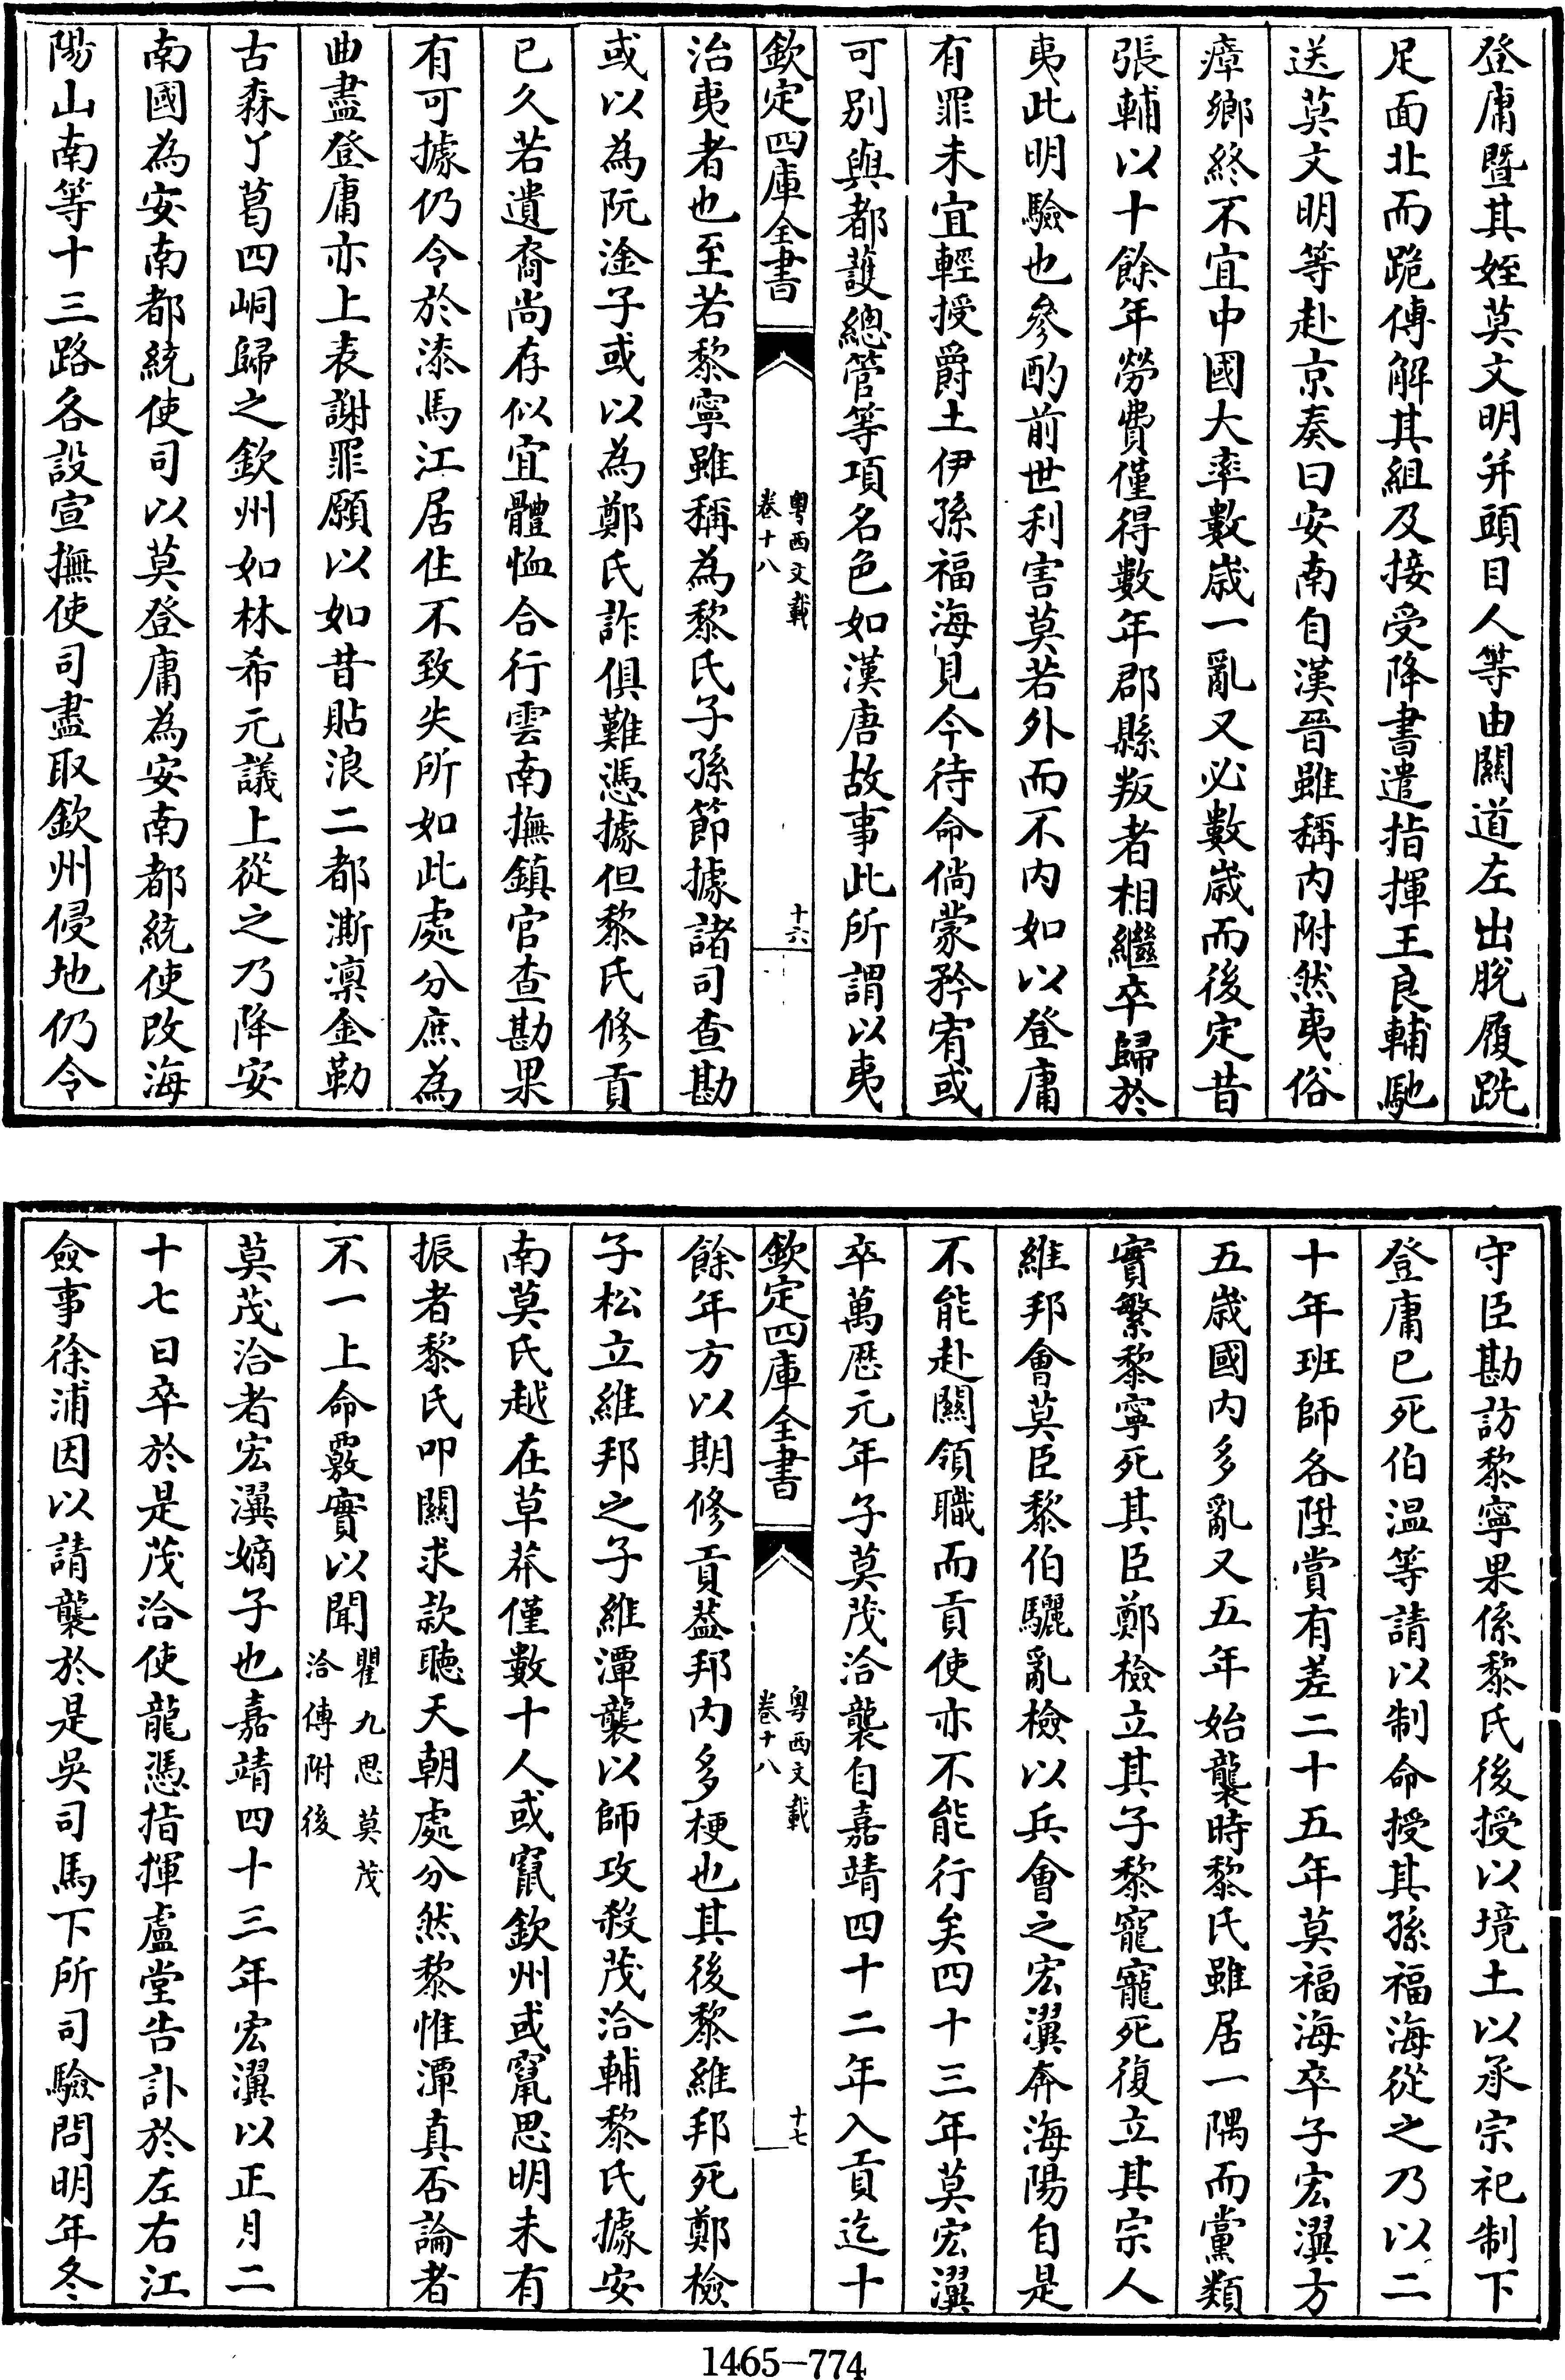 登庸暨其姪莫文明并頭目人等由關道左出脫履跣
足面北而跪傳解其組及接受降書遣指揮王良輔馳
送莫文明等赴京奏曰安南自漢晉雖稱内附然夷俗
瘴鄉終不宜中國大率數歲一亂又必數歲而後定昔
張輔以十餘年勞費僅得數年郡縣叛者相繼卒歸於
夷此明驗也參酌前世利害莫若外而不内如以登庸
有罪未宜輕授爵土伊孫福海見今待命倘蒙矜宥或
可别與都護總管等項名色如漢唐故事此所謂以夷
欽定四庫全書
粤西文載
卷十八
十六
治夷者也至若黎寧雖稱為黎氏子孫節據諸司查勘
或以為阮淦子或以為鄭氏詐俱難憑據但黎氏修貢
已久若遺裔尚存似宜體恤合行雲南撫鎮官查勘果
有可據仍令於漆馬江居住不致失所如此處分庶為
曲盡登庸亦上表謝罪願以如昔貼浪二都澌凛金勒
古森丫葛四峒歸之欽州如林希元議上從之乃降安
南國為安南都統使司以莫登庸為安南都統使改海
陽山南等十三路各設宣撫使司盡取欽州侵地仍令
守臣勘訪黎寧果係黎氏後授以境土以承宗祀制下
登庸已死伯温等請以制命授其孫福海從之乃以二
十年班師各陞賞有差二十五年莫福海卒子宏瀷方
五歲國内多亂又五年始襲時黎氏雖居一隅而黨類
實繁黎寧死其臣鄭檢立其子黎寵寵死復立其宗人
維邦會莫臣黎伯驪亂檢以兵會之宏瀷奔海陽自是
不能赴關領職而貢使亦不能行矣四十三年莫宏瀷
卒萬厯元年子莫茂洽襲自嘉靖四十二年入貢迄十
欽定四庫全書
粤西文載
卷十八
十七
餘年方以期修貢葢邦内多梗也其後黎維邦死鄭檢
子松立維邦之子維潭襲以師攻殺茂洽輔黎氏據安
南莫氏越在草莽僅數十人或竄欽州或竄思明未有
振者黎氏叩關求款聽天朝處分然黎惟潭真否論者
不一上命覈實以聞瞿九思莫茂
洽傳附後
莫茂洽者宏瀷嫡子也嘉靖四十三年宏瀷以正月二
十七日卒於是茂洽使龍憑指揮盧堂告訃於左右江
僉事徐浦因以請襲於是吳司馬下所司驗問明年冬
1465-774